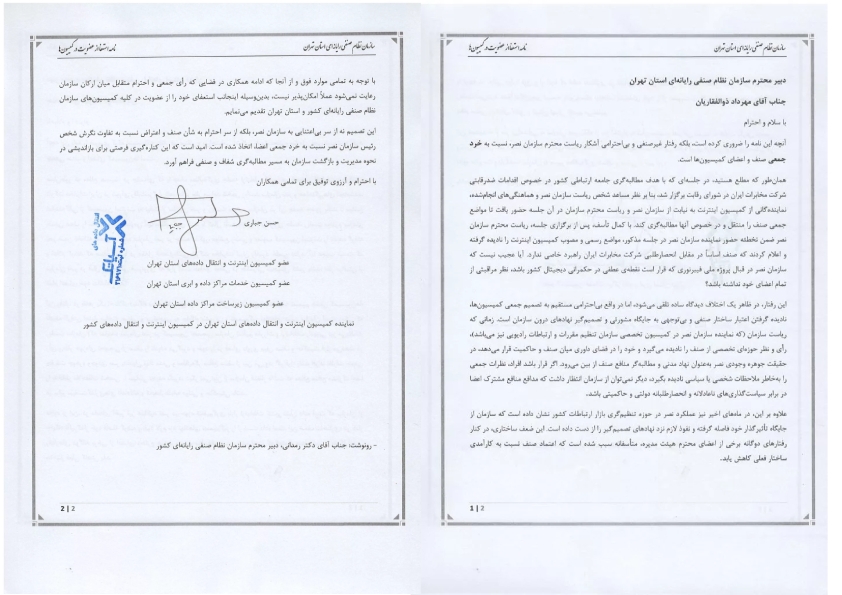 سازمان نظام صنفی رایانه‌ای استان تهران
نامه استعفا از عضویت در کمیسیون‌ها
دبیر محترم سازمان نظام صنفی رایانه‌ای استان تهران
جناب آقای مهرداد ذوالفقاریان
با سلام و احترام
آنچه این نامه را ضروری کرده است، بلکه رفتار غیرصنفی و بی‌احترامی آشکار ریاست محترم سازمان نصر، نسبت به خرد
جمعی صنف و اعضای کمیسیون‌ها است.
همان‌طور که مطلع هستید، در جلسه‌ای که با هدف مطالبه‌گری جامعه ارتباطی کشور در خصوص اقدامات ضدرقابتی
شرکت مخابرات ایران در شورای رقابت برگزار شد، بنا بر نظر مساعد شخص ریاست سازمان نصر و هماهنگی‌های انجام‌شده،
نماینده‌گانی از کمیسیون اینترنت به نیابت از سازمان نصر و ریاست محترم سازمان در آن جلسه حضور یافت تا مواضع
جمعی صنف را منتقل و در خصوص آنها مطالبه‌گری کند. با کمال تأسف، پس از برگزاری جلسه، ریاست محترم سازمان
نصر ضمن تخطئه حضور نماینده سازمان نصر در جلسه مذکور، مواضع رسمی و مصوب کمیسیون اینترنت را نادیده گرفته
و اعلام کردند که صنف اساساً در مقابل انحصارطلبی شرکت مخابرات ایران راهبرد خاصی ندارد. آیا عجیب نیست که
سازمان نصر در قبال پروژه ملی فیبرنوری که قرار است نقطه‌ی عطفی در حکمرانی دیجیتال کشور باشد، نظر مراقبتی از
تمام اعضای خود نداشته باشد؟
این رفتار، در ظاهر یک اختلاف دیدگاه ساده تلقی می‌شود، اما در واقع بی‌احترامی مستقیم به تصمیم جمعی کمیسیون‌ها،
نادیده گرفتن اعتبار ساختار صنفی و بی‌توجهی به جایگاه مشورتی و تصمیم‌گیر نهادهای درون سازمان است. زمانی که
ریاست سازمان (که نماینده سازمان نصر در کمیسیون تخصصی سازمان تنظیم مقررات و ارتباطات رادیویی نیز می‌باشد)،
رأی و نظر حوزه‌ای تخصصی از صنف را نادیده می‌گیرد و خود را در فضای داوری میان صنف و حاکمیت قرار می‌دهد، در
حقیقت جوهره وجودی نصر به‌عنوان نهاد مدنی و مطالبه‌گر منافع صنف از بین می‌رود. اگر قرار باشد افراد، نظرات جمعی
را به‌خاطر ملاحظات شخصی یا سیاسی نادیده بگیرد، دیگر نمی‌توان از سازمان انتظار داشت که مدافع منافع مشترک اعضا
در برابر سیاست‌گذاری‌های ناعادلانه و انحصارطلبانه دولتی و حاکمیتی باشد.
علاوه بر این، در ماه‌های اخیر نیز عملکرد نصر در حوزه تنظیم‌گری بازار ارتباطات کشور نشان داده است که سازمان از
جایگاه تأثیرگذار خود فاصله گرفته و نفوذ لازم نزد نهادهای تصمیم‌گیر را از دست داده است. این ضعف ساختاری، در کنار
رفتارهای دوگانه برخی از اعضای محترم هیئت مدیره، متأسفانه سبب شده است که اعتماد صنف نسبت به کارآمدی
ساختار فعلی کاهش یابد.
1 | 2
سازمان نظام صنفی رایانه‌ای استان تهران
نامه استعفا از عضویت در کمیسیون‌ها
با توجه به تمامی موارد فوق و از آنجا که ادامه همکاری در فضایی که رأی جمعی و احترام متقابل میان ارکان سازمان
رعایت نمی‌شود عملاً امکان‌پذیر نیست، بدین‌وسیله اینجانب استعفای خود را از عضویت در کلیه کمیسیون‌های سازمان
نظام صنفی رایانه‌ای کشور و استان تهران تقدیم می‌نمایم.
این تصمیم نه از سر بی‌اعتنایی به سازمان نصر، بلکه از سر احترام به شأن صنف و اعتراض نسبت به تفاوت نگرش شخص
رئیس سازمان نصر نسبت به خرد جمعی اعضا، اتخاذ شده است. امید است که این کناره‌گیری فرصتی برای بازاندیشی در
نحوه مدیریت و بازگشت سازمان به مسیر مطالبه‌گری شفاف و صنفی فراهم آورد.
با احترام و آرزوی توفیق برای تمامی همکاران
حسن جباری
عضو کمیسیون اینترنت و انتقال داده‌های استان تهران
عضو کمیسیون خدمات مراکز داده و ابری استان تهران
عضو کمیسیون زیرساخت مراکز داده استان تهران
نماینده کمیسیون اینترنت و انتقال داده‌های استان تهران در کمیسیون اینترنت و انتقال داده‌های کشور
انتقال داده های
آسیاتک
- رونوشت: جناب آقای دکتر رمدانی، دبیر محترم سازمان نظام صنفی رایانه‌ای کشور
2 | 2